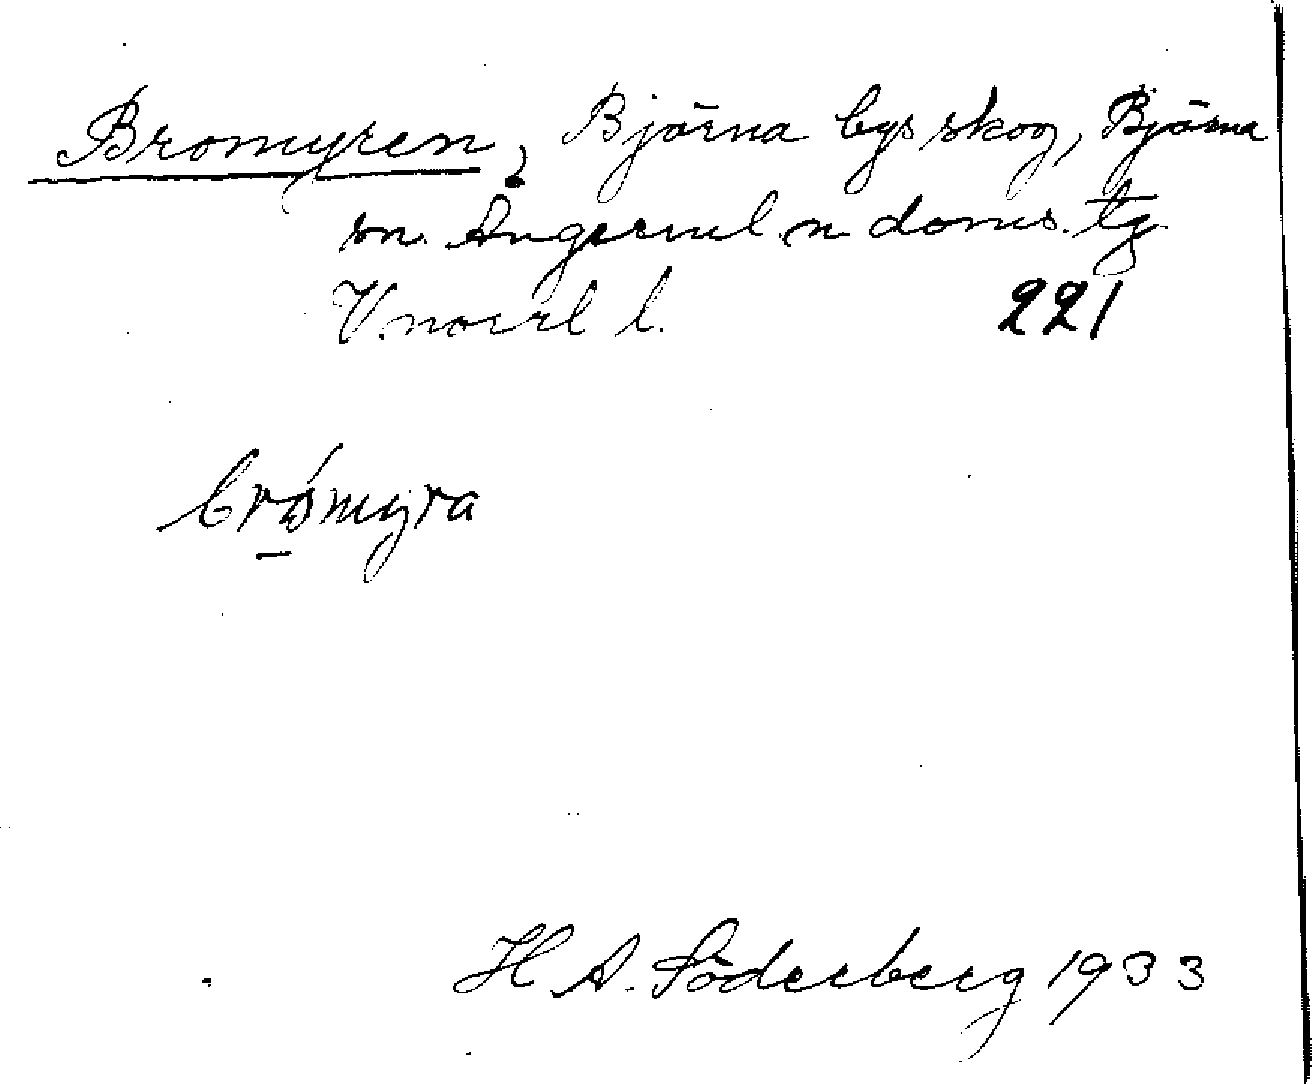 Bromyren, Björna bys skog, Björna
sn. Ångerml. n. doms. tg
V.norrl l. 221
brómyra
H A. Söderberg 1933